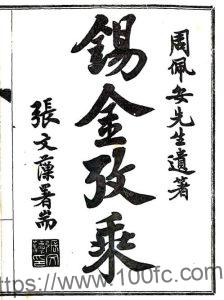 周佩安先生遺著
錫金攷乘
張文藻署耑
https://www.100fc.com